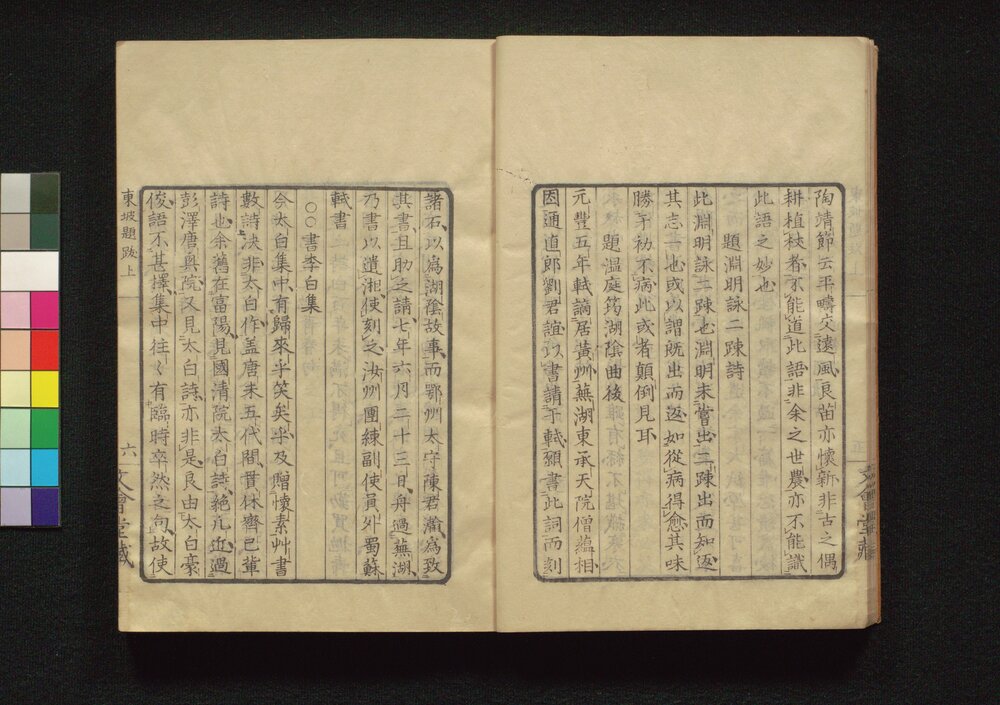 陶靖節云平疇交遠風良苗亦懷新非古之偶
耕植杖者不能道此語非余之世農亦不能識
此語之妙也
題淵明詠二疎詩
此淵明詠二疎也淵明未嘗出二疎出而知返
其志一也或以謂既出而返如從病得愈其味
勝於初不病此或者顛倒見耳
題溫庭筠湖陰曲後
元豐五年軾謫居黃州蕪湖東承天院僧蘊相
因通直郎劉君誼以書請于軾願書此詞而刻
諸石以為湖陰故事而鄂州太守陳君瀚為致
其書且助之請七年六月二十三日舟過蕪湖
乃書以遺湘使刻之汝州團練副使員外蜀蘇
軾書
○○書李白集
今太白集中有歸來乎笑矣乎及贈懷素艸書
數詩決非太白作盖唐末五代間貫休齊己輩
詩也余舊在富陽見國清院太白詩絕凡近過
彭澤唐興院又見太白詩亦非是良由太白豪
俊語不甚擇集中往〻有臨時卒然之句故使
東坡題跋上
六
文會堂藏